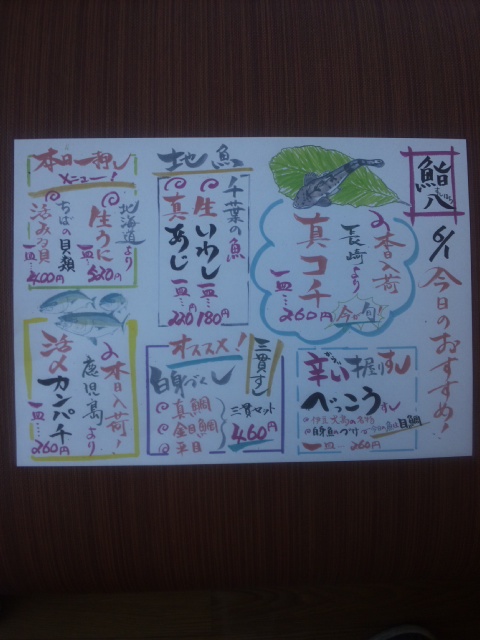 鮨八
6/1 今日のおすすめ!
本日入荷
長崎より
真コチ
一皿…260円
今が旬!
辛い握りずし
べっこうずし
一皿…260円
地魚
千葉の魚
生いわし
一皿…180円
真あじ
一皿…220円
オススメ!
三貫ずし
白身づくし
真鯛
金目鯛
平目
三貫セット
460円
本日一押し
メニュー!
北海道より
生うに
一皿…520円
ちばの貝類
活みる貝
一皿…400円
本日入荷!
鹿児島より
活〆カンパチ
一皿…260円